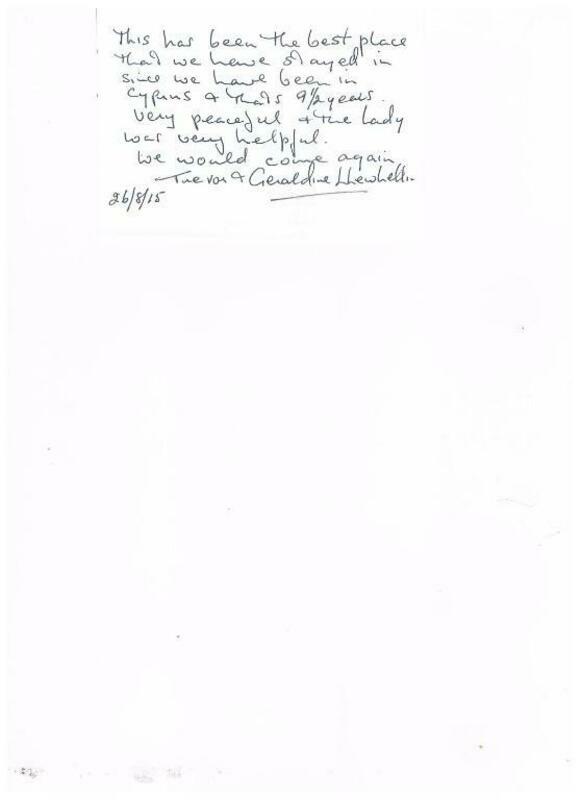 This has been the best place
that we have stayed in
since we have been in
Cyprus & thats 9½ years.
Very peaceful & the lady
was very helpful.
We would come again
Trevor & Geraldine
26/8/15